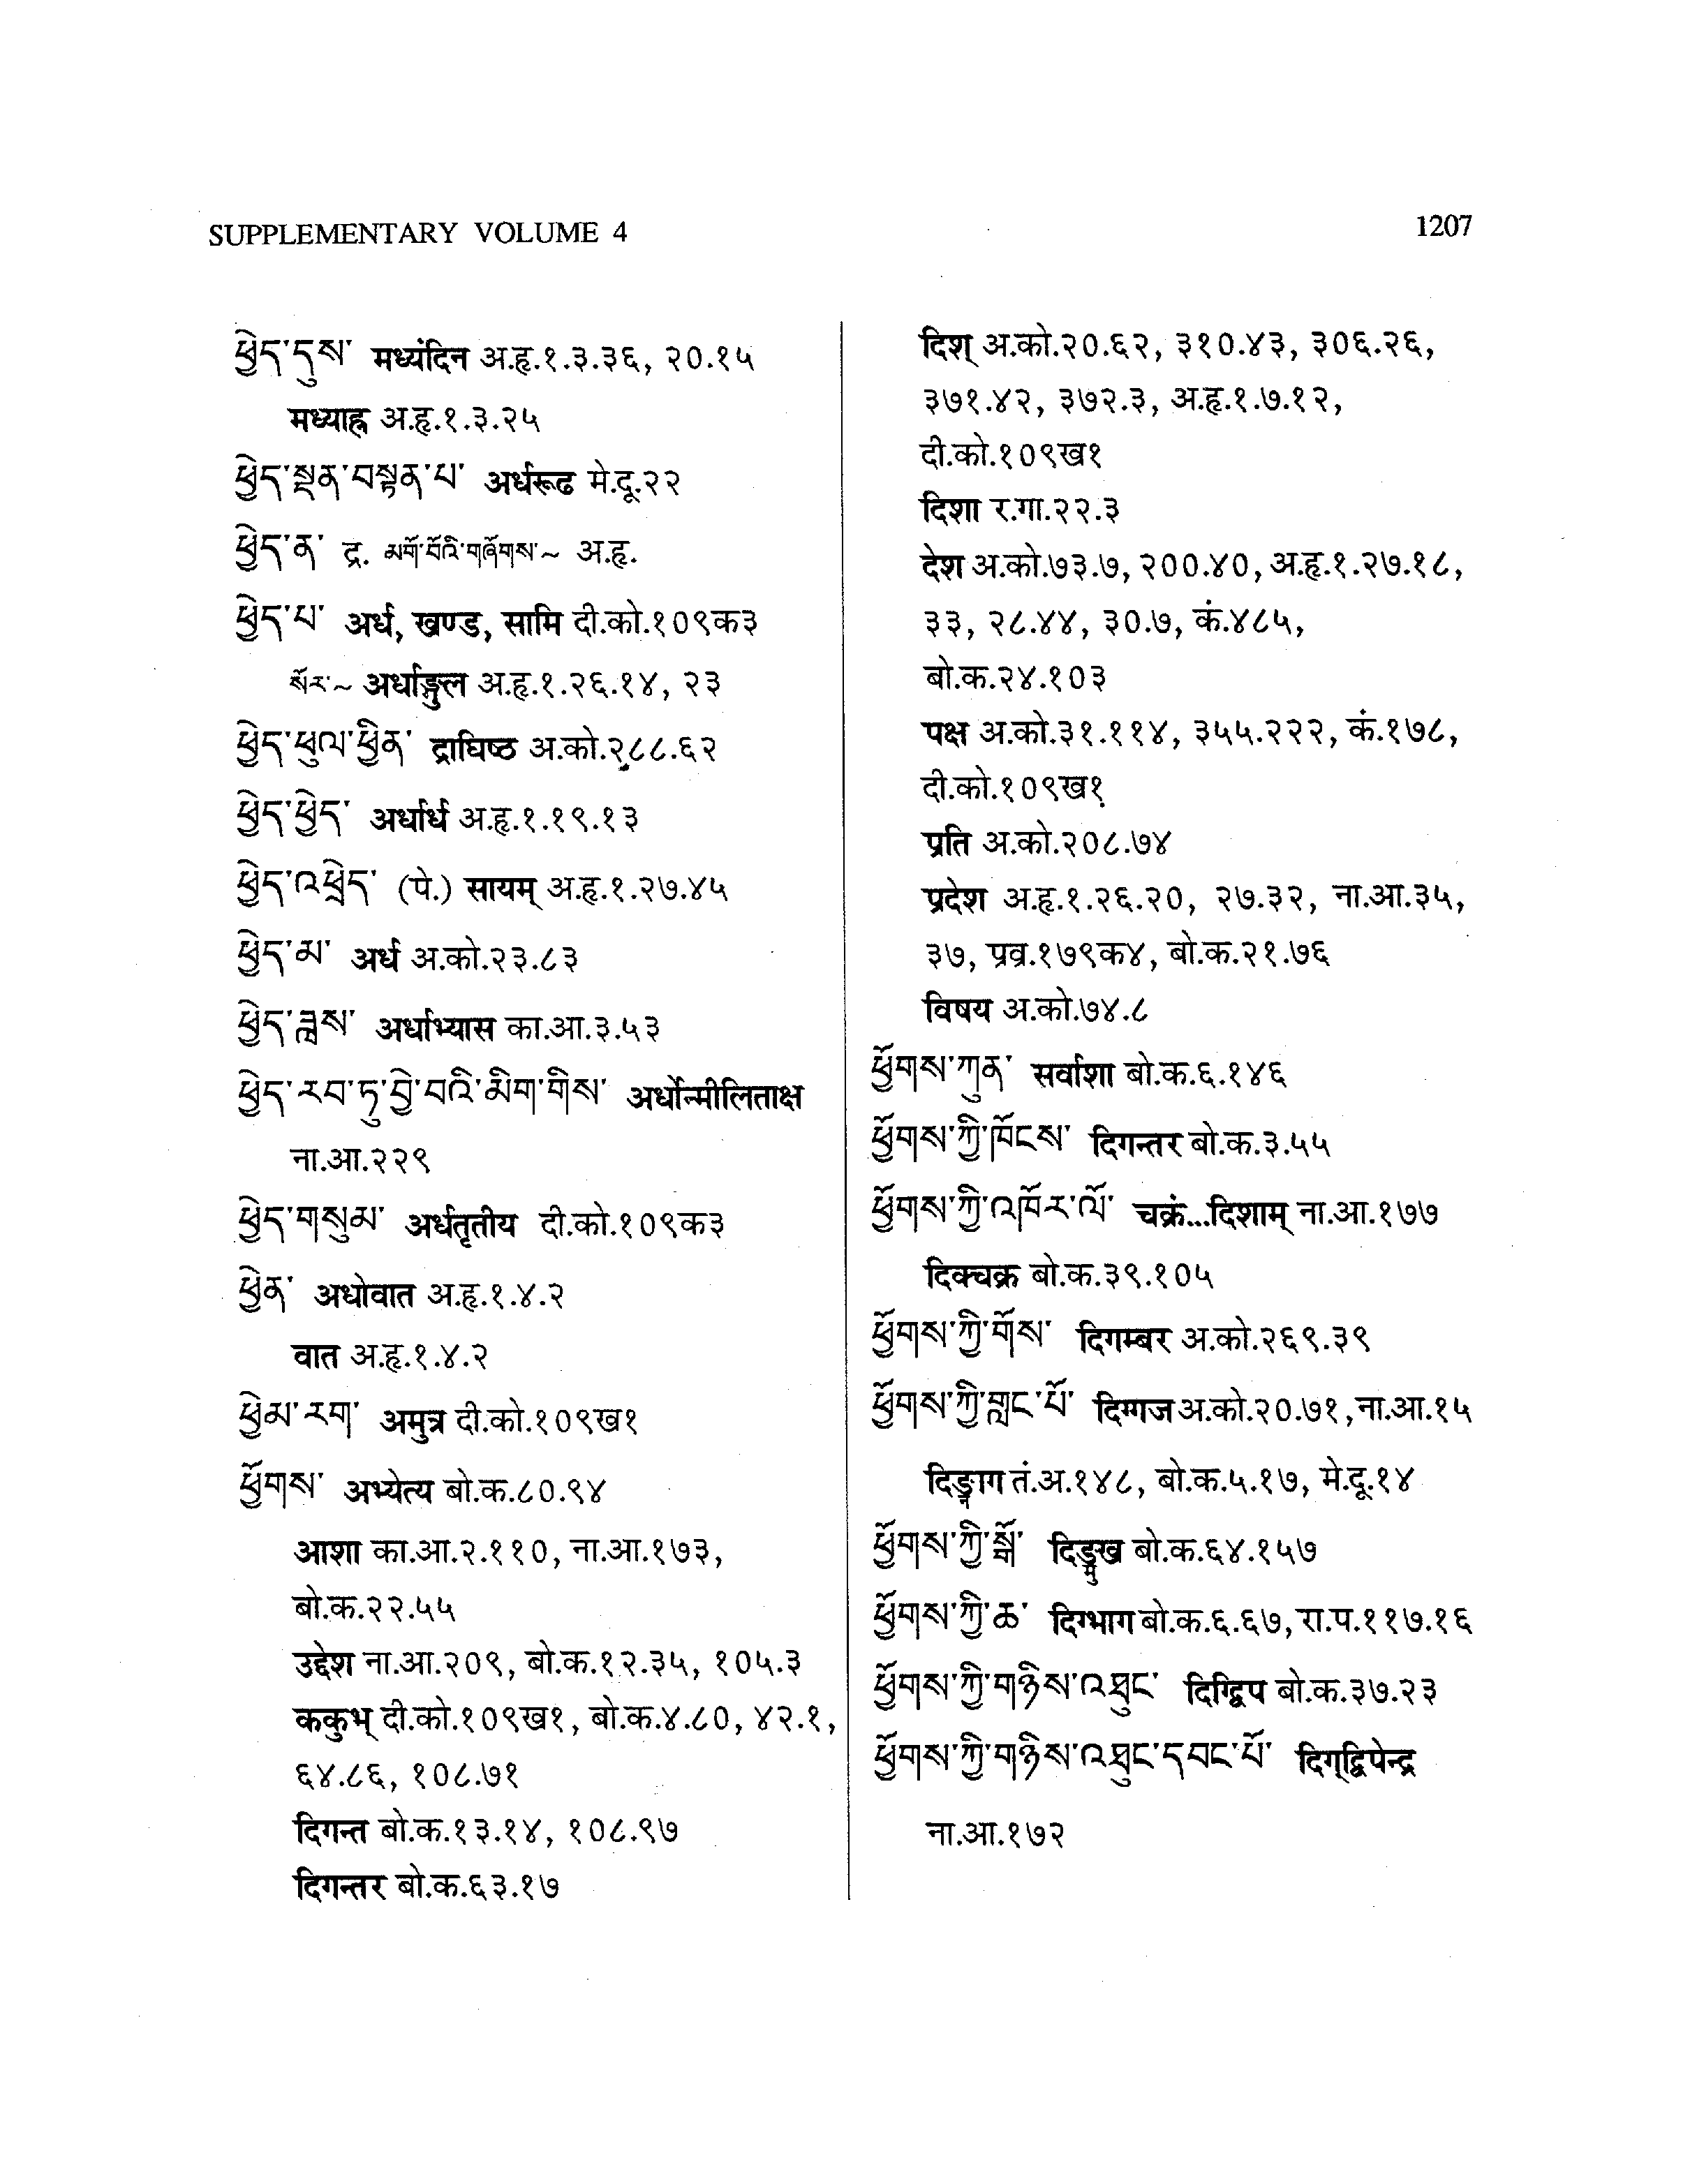 SUPPLEMENTARY VOLUME 4
1207
ཕྱེད་དུས་ मध्यंदिन अ.हृ.१.३.३६, २०.१५
मध्याह्न अ.हृ.१.३.२५
ཕྱེད་སྔན་བསྟན་པ་ अर्धरूढ मे.दू.२२
ཕྱེད་ན་ द्र. མགོ་བོའི་གཞོགས་~ अ.हृ.
ཕྱེད་པ་ अर्ध, खण्ड, सामि दी.को.१०९क३
སོར་~ अर्धाङ्गुल अ.हृ.१.२६.१४, २३
ཕྱེད་ཕུལ་ཕྱིན་ द्राघिष्ठ अ.को.२८८.६२
ཕྱེད་ཕྱེད་ अर्धार्ध अ.हृ.१.१९.१३
ཕྱེད་འཕྲེད་ (पे.) सायम् अ.हृ.१.२७.४५
ཕྱེད་མ་ अर्ध अ.को.२३.८३
ཕྱེད་ཟླས་ अर्धाभ्यास का.आ.३.५३
ཕྱེད་རབ་ཏུ་བྱེ་བའི་མིག་གིས་ अर्धोन्मीलिताक्ष
ना.आ.२२९
ཕྱེད་གསུམ་ अर्धतृतीय दी.को.१०९क३
ཕྱེན་ अधोवात अ.हृ.१.४.२
वात अ.हृ.१.४.२
ཕྱེམ་རག་ अमुत्र दी.को.१०९ख१
ཕྱོགས་ अभ्येत्य बो.क.८०.९४
आशा का.आ.२.११०, ना.आ.१७३,
बो.क.२२.५५
उद्देश ना.आ.२०९, बो.क.१२.३५, १०५.३
ककुभ् दी.को.१०९ख१, बो.क.४.८०, ४२.१,
६४.८६, १०८.७१
दिगन्त बो.क.१३.१४, १०८.९७
दिगन्तर बो.क.६३.१७
दिश् अ.को.२०.६२, ३१०.४३, ३०६.२६,
३७१.४२, ३७२.३, अ.हृ.१.७.१२,
दी.को.१०९ख१
दिशा र.गा.२२.३
देश अ.को.७३.७, २००.४०, अ.हृ.१.२७.१८,
३३, २८.४४, ३०.७, कं.४८५,
बो.क.२४.१०३
पक्ष अ.को.३१.११४, ३५५.२२२, कं.१७८,
दी.को.१०९ख१
प्रति अ.को.२०८.७४
प्रदेश अ.हृ.१.२६.२०, २७.३२, ना.आ.३५,
३७, प्रव्र.१७९क४, बो.क.२१.७६
विषय अ.को.७४.८
ཕྱོགས་ཀུན་ सर्वाशा बो.क.६.१४६
ཕྱོགས་ཀྱི་ཁོངས་ दिगन्तर बो.क.३.५५
ཕྱོགས་ཀྱི་འཁོར་ལོ་ चक्रं...दिशाम् ना.आ.१७७
दिक्चक्र बो.क.३९.१०५
ཕྱོགས་ཀྱི་གོས་ दिगम्बर अ.को.२६९.३९
ཕྱོགས་ཀྱི་གླང་པོ་ दिग्गज अ.को.२०.७१, ना.आ.१५
दिङ्नाग तं.अ.१४८, बो.क.५.१७, मे.दू.१४
ཕྱོགས་ཀྱི་སྒོ་ दिङ्मुख बो.क.६४.१५७
ཕྱོགས་ཀྱི་ཆ་ दिग्भाग बो.क.६.६७, रा.प.११७.१६
ཕྱོགས་ཀྱི་གཉིས་འཐུང་ दिग्द्विप बो.क.३७.२३
ཕྱོགས་ཀྱི་གཉིས་འཐུང་དབང་པོ་ दिग्द्विपेन्द्र
ना.आ.१७२